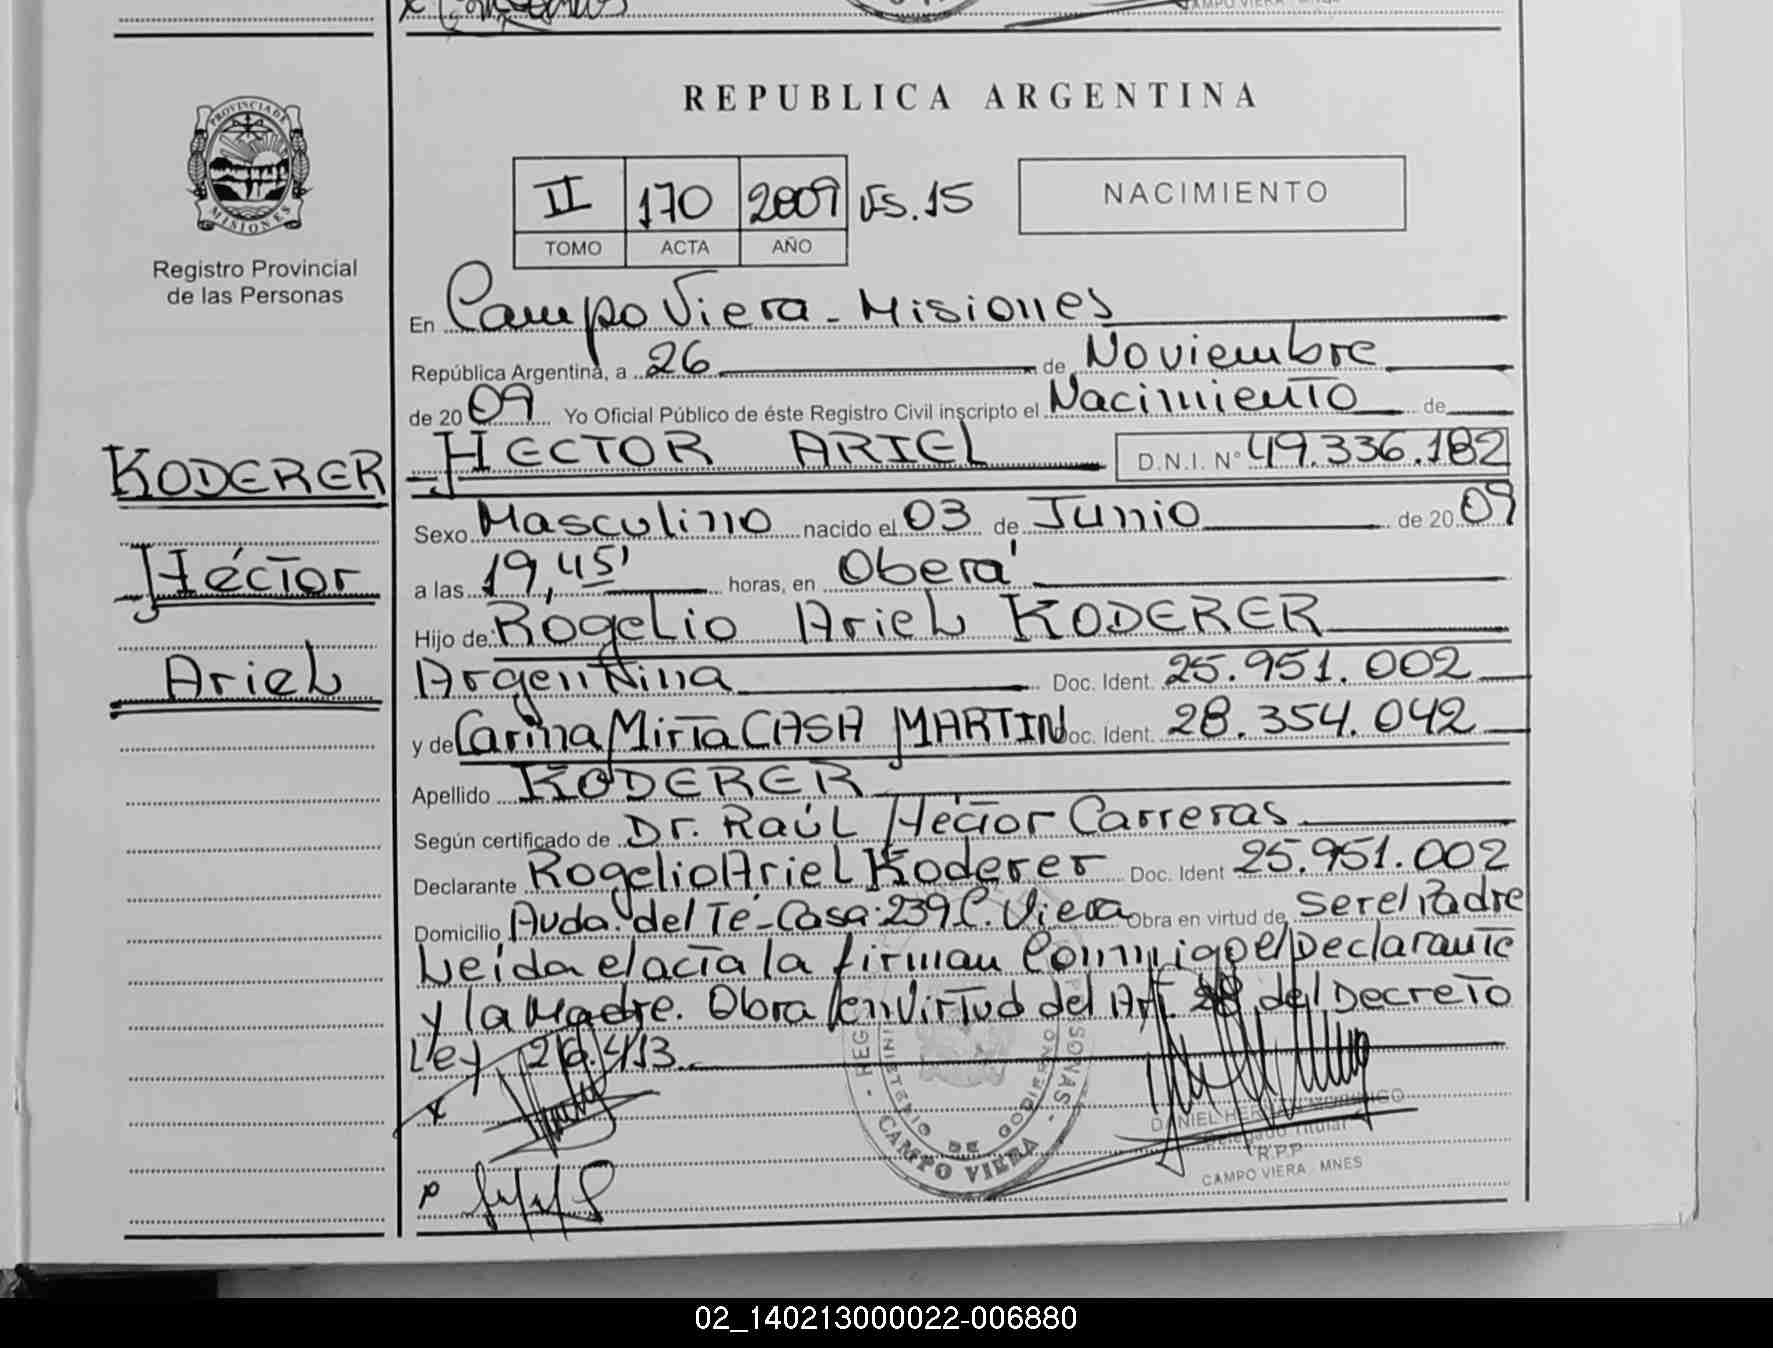 CAMPO VIERA
REPUBLICA ARGENTINA
PROVINCIA DE
MISIONES
Registro Provincial
de las Personas
II 170 2009 FS. 15
TOMO ACTA AÑO
NACIMIENTO
En Campo Viera - Misiones
República Argentina, a 26 de Noviembre
de 2009 Yo Oficial Público de éste Registro Civil inscripto el Nacimiento de
HECTOR ARIEL D.N.I. N° 49.336.182
KODERER
Héctor
Ariel
Sexo Masculino nacido el 03 de Junio de 2009
a las 19,45' horas, en Oberá
Hijo de: Rogelio Ariel KODERER
Argentina Doc. Ident. 25.951.002
y de Carina Mirta CASA MARTIN Doc. Ident. 28.354.042
Apellido KODERER
Según certificado de Dr. RaúL Héctor Carreras
Declarante Rogelio Ariel Koderer Doc. Ident 25.951.002
Domicilio Avda. del Té - Casa: 239 C. Viera Obra en virtud de Ser el Padre
Leída el acta la firman Conmigo el Declarante
y la Madre. Obra en Virtud del Art. 28 del Decreto
Ley 20.413.
CAMPO VIERA
MINISTERIO DE GOBIERNO
Delegado Titular
R.P.P
CAMPO VIERA MNES
02_140213000022-006880